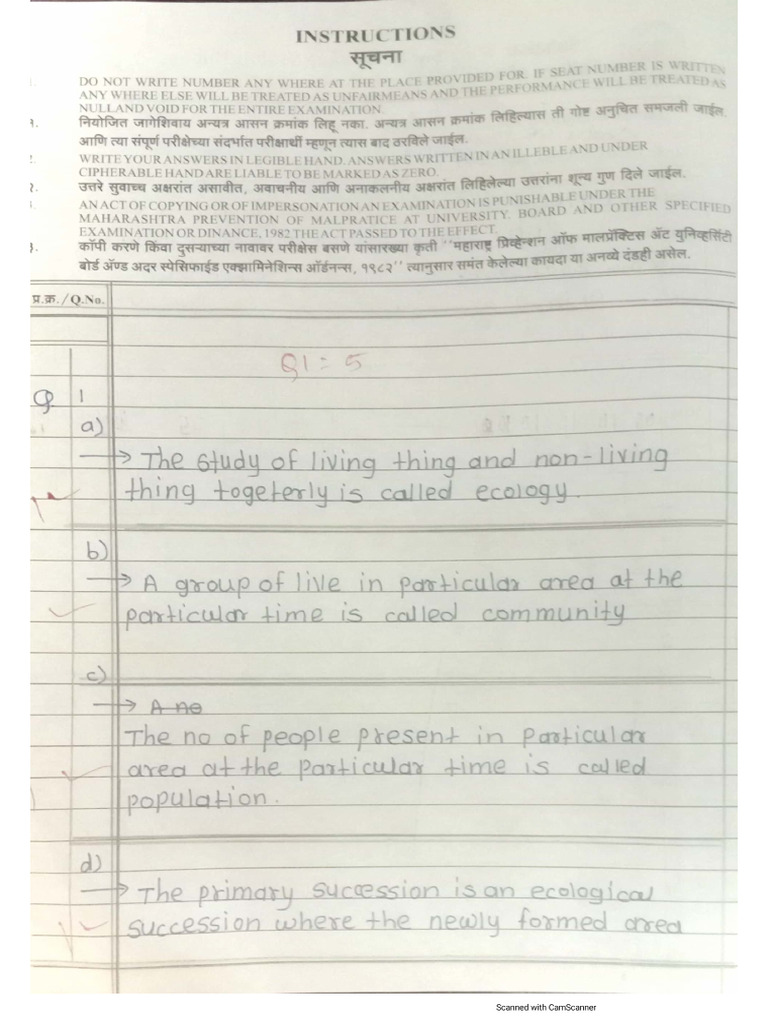 INSTRUCTIONS
सूचना
DO NOT WRITE NUMBER ANY WHERE AT THE PLACE PROVIDED FOR. IF SEAT NUMBER IS WRITTEN
ANY WHERE ELSE WILL BE TREATED AS UNFAIRMEANS AND THE PERFORMANCE WILL BE TREATED AS
NULLAND VOID FOR THE ENTIRE EXAMINATION.
१. नियोजित जागेशिवाय अन्यत्र आसन क्रमांक लिहू नका. अन्यत्र आसन क्रमांक लिहिल्यास ती गोष्ट अनुचित समजली जाईल.
आणि त्या संपूर्ण परीक्षेच्या संदर्भात परीक्षार्थी म्हणून त्यास बाद ठरविले जाईल.
WRITE YOUR ANSWERS IN LEGIBLE HAND. ANSWERS WRITTEN IN AN ILLEBLE AND UNDER
CIPHERABLE HAND ARE LIABLE TO BE MARKED AS ZERO.
२. उत्तरे सुवाच्च अक्षरांत असावीत, अवाचनीय आणि अनाकलनीय अक्षरांत लिहिलेल्या उत्तरांना शून्य गुण दिले जाईल.
AN ACT OF COPYING OR OF IMPERSONATION AN EXAMINATION IS PUNISHABLE UNDER THE
MAHARASHTRA PREVENTION OF MALPRATICE AT UNIVERSITY. BOARD AND OTHER SPECIFIED
EXAMINATION OR DINANCE, 1982 THE ACT PASSED TO THE EFFECT.
३. कॉपी करणे किंवा दुसऱ्याच्या नावावर परीक्षेस बसणे यांसारख्या कृती "महाराष्ट्र प्रिव्हेन्शन ऑफ मालप्रॅक्टिस ॲट युनिव्हर्सिटी
बोर्ड ॲण्ड अदर स्पेसिफाईड एक्झामिनेशिन्स ऑर्डनन्स, १९८२" त्यानुसार समंत केलेल्या कायदा या अनव्ये दंडही असेल.
प्र.क्र./Q.No.
Q1 = 5
Q 1
a)
→ The study of living thing and non-living
thing togeterly is called ecology.
b)
→ A group of live in particular area at the
particular time is called community
c)
→ A no
The no of people present in particular
area at the particular time is called
population.
d)
→ The primary succession is an ecological
succession where the newly formed area
Scanned with CamScanner